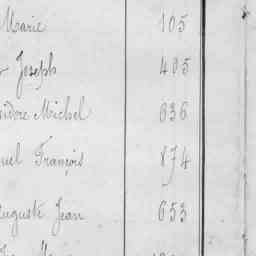 Marie 105
Joseph 405
Isidore Michel 636
François 874
Auguste Jean 653